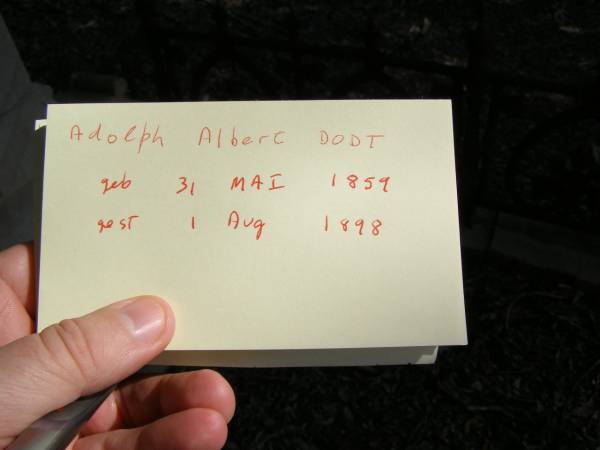 Adolph Albert DODT
geb 31 MAI 1859
gest 1 Aug 1898